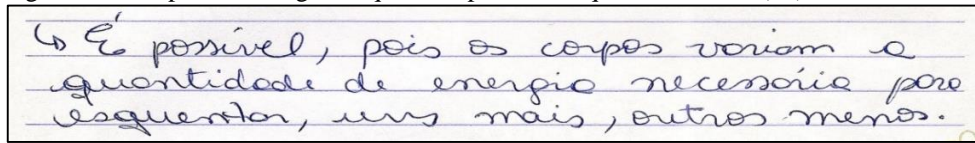 ↳ É possível, pois os corpos variam a
quantidade de energia necessária para
esquentar, uns mais, outros menos.